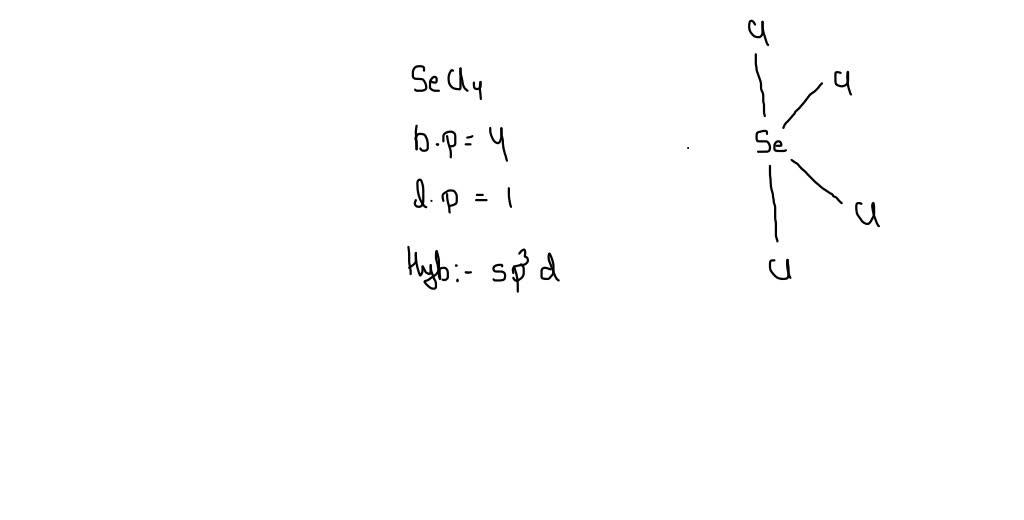 SeCl4
b.p = 4
d.p = 1
Hyb:- sp³d
Cl
Cl
Se
Cl
Cl